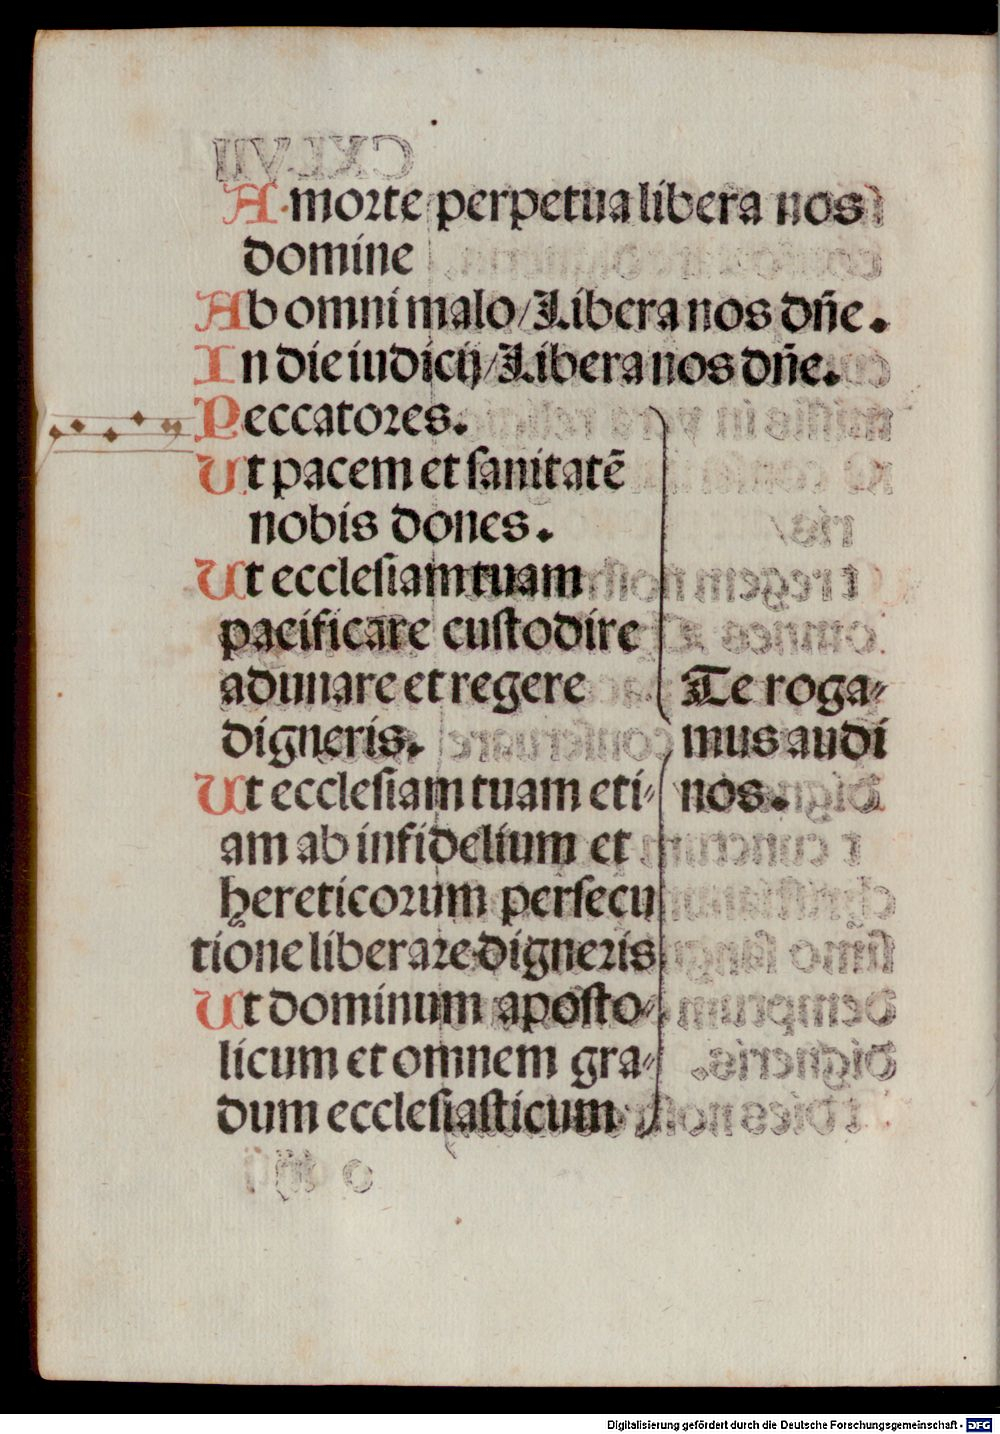 A morte perpetua libera nos
domine
Ab omni malo/Libera nos dñe.
In die iudicij/Libera nos dñe.
Peccatores.
Ut pacem et sanitatē
nobis dones.
Ut ecclesiam tuam
pacificare custodire
adunare et regere
digneris.
Ut ecclesiam tuam eti-
am ab infidelium et
hereticorum persecu
tione liberare digneris
Ut dominum aposto-
licum et omnem gra-
dum ecclesiasticum
Te roga-
mus audi
nos.
Digitalisierung gefördert durch die Deutsche Forschungsgemeinschaft - DFG